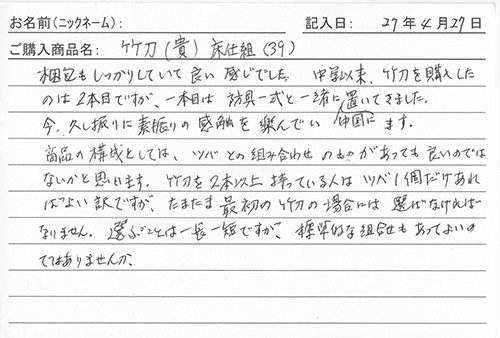 お名前(ニックネーム): 記入日: 27年4月27日
ご購入商品名: 竹刀(貴) 床仕組(39)
梱包もしっかりしていて良い感じでした。中学以来、竹刀を購入した
のは2本目ですが、一本目は防具一式と一緒に置いてきました。
中国に
今、久し振りに素振りの感触を楽んでい ます。
商品の構成としては、ツバとの組み合わせのものがあっても良いのでは
ないかと思います。竹刀を2本以上持っている人はツバ1個だけあれ
ばよい訳ですが、たまたま最初の竹刀の場合には選ばなければ
なりません。選ぶことは一長一短ですが、標準的な組合せもあってよいの
ではありませんか。